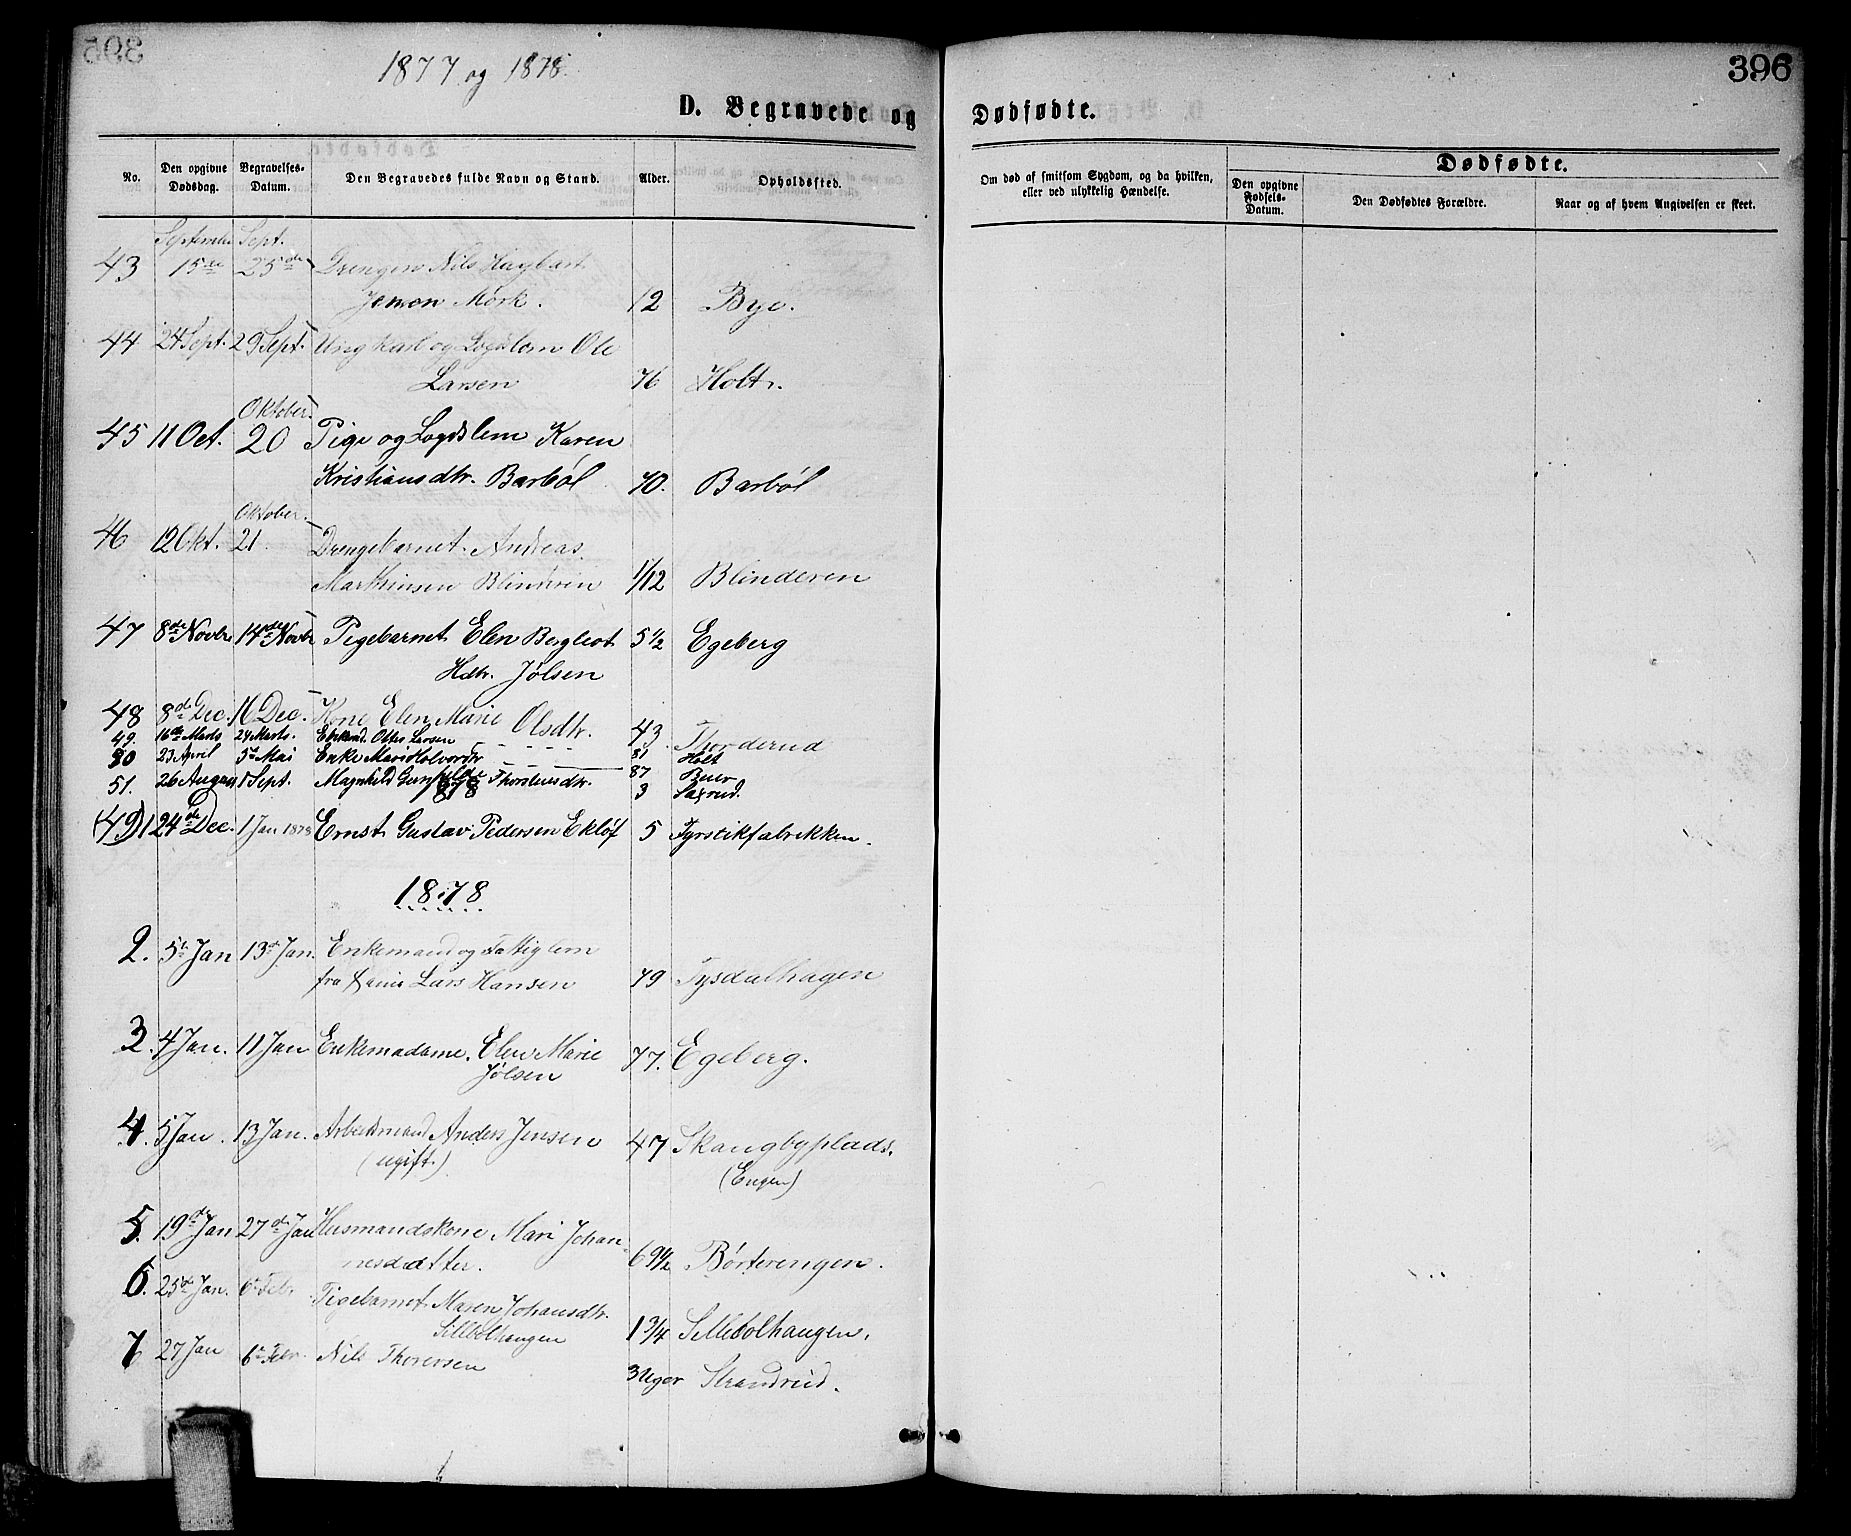 395
1877 og 1878.
396
D. Begravede og Dødfødte.
No. Den opgivne Dødsdag. Begravelses-Datum. Den Begravedes fulde Navn og Stand. Alder. Opholdssted. Om død af smitsom Sygdom, og da hvilken, eller ved ulykkelig Hændelse. Dødfødte.
Den opgivne Fødsels-Datum. Den Dødfødtes Forældre. Naar og af hvem Angivelsen er skeet.
September Sept.
43 15de 25de Drengen Nils Hagbart
Jensen Mørk. 12 Bye.
44 24 Sept. 29 Sept. Ungkarl og Lægdslem Ole
Larsen 76 Holt.
Oktober.
45 11 Oct. 20 Pige og Lægdslem Karen
Kristiansdtr. Barbøl 70. Barbøl
Oktober.
46 12 Okt. 21. Drengebarnet Andreas
Marthinsen Blinderen 1/12 Blinderen
47 8de Novbr 14de Novbr Pigebarnet Elen Bergljot 5 1/2 Egeberg
Hdtr. Jølsen
48 8de Dec. 16 Dec. Kone Elen Marie Olsdtr. 43. Thorderud
49. 16de Marts 24 Marts. Larsen 81 Holt
50 23 April 5te Mai Enke Mari Halvordtr 87
51. 26 August 1 Sept. Magnhild Thorstensdtr. 3 Saxrud.
(49) 1 24de Dec. 1 Jan 1878 Ernst Gustav Pedersen Ekløf 5 Fyrstikfabrikken.
1878
2. 5te Jan 13de Jan. Enkemand og Fattiglem
fra Lars Hansen 79 Tysdalhagen
3. 4 Jan. 11 Jan Enkemadame. Elen Marie
Jølsen 77. Egeberg.
4. 5 Jan. 13 Jan. Arbeidsmand Anders Jensen 47 Skangbyplads.
(ugift.) (Engen)
5. 19de Jan 27de Jan Husmandskone Mari Johan-
nesdatter. 69 1/2 Børterengen.
6. 25de Jan. 6te Febr. Pigebarnet Maren Johansdtr.
Sillebolhaugen 1 3/4 Sillebolhaugen.
7 27 Jan 6te Febr. Nils Thorersen 3 Uger Strandrud.